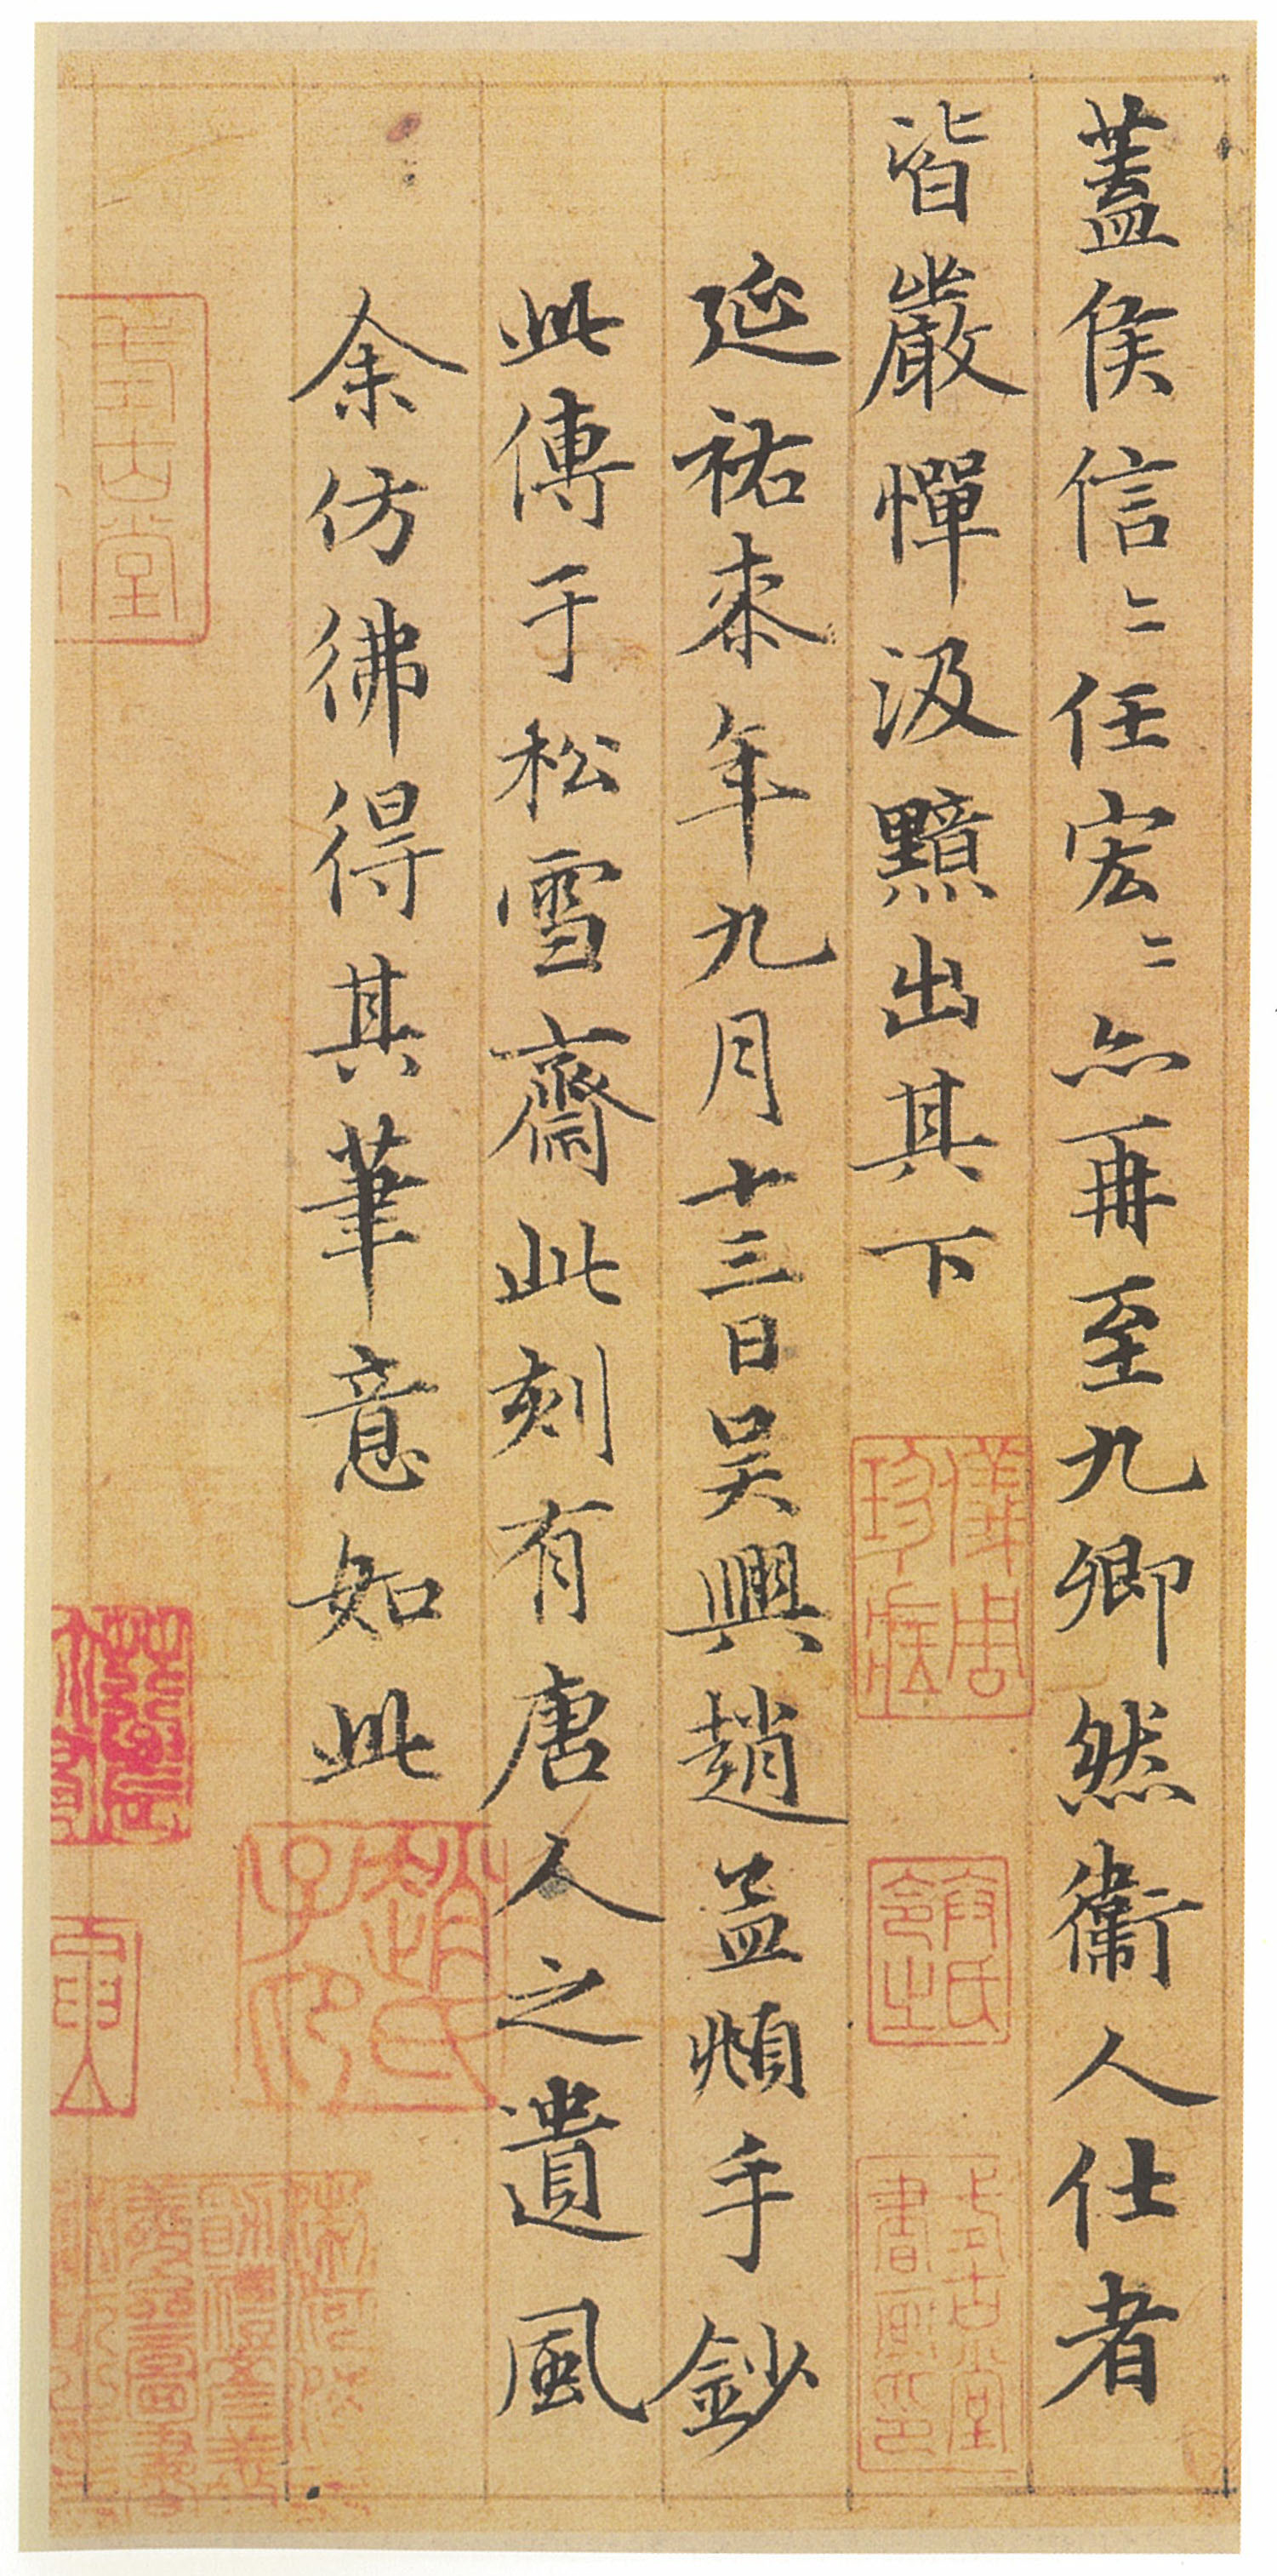 蓋侯信〻任宏〻亦再至九卿然衞人仕者
皆嚴憚汲黯出其下
延祐柒年九月十三日吴興趙孟頫手鈔
此傳于松雪齋此刻有唐人之遺風
余仿彿得其筆意如此
儀周珍藏
趙氏子昂